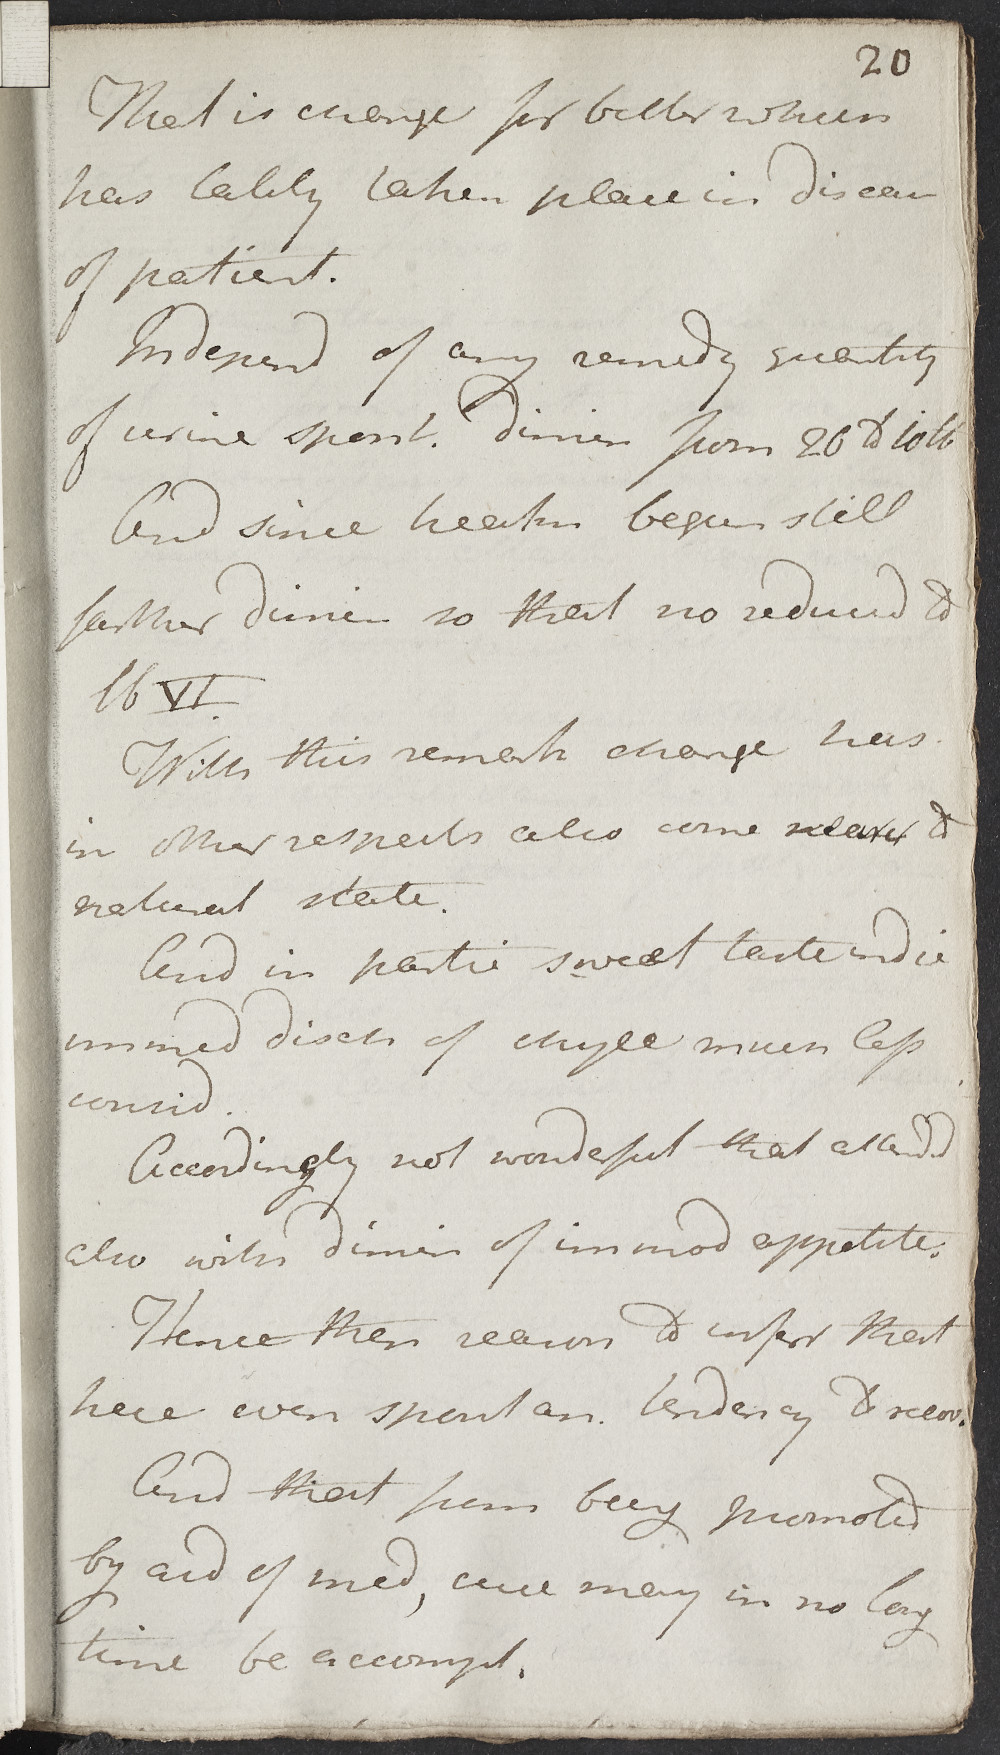 20
That is change for better which
has lately taken place in disease
of patient.
Independ of any remedy quantity
of urine spont. dimin from 26 to 10 lb
And since health begun still
farther dimin so that no reduced to
lb VI.
With this remark change has
in other respects also come nearer to
natural state.
And in partic sweet taste indic
immed disch of chyle much less
consid.
Accordingly not wonderful that attend
also with dimin of immod appetite.
Hence then reason to infer that
here even spontan. tendency to recov.
And that from being promoted
by aid of med, cure may in no long
time be accompl.